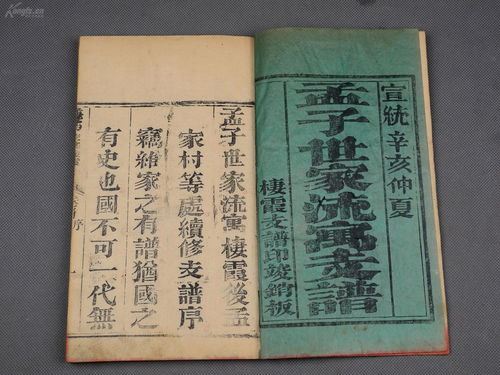 宣統辛亥仲夏
孟子世家流寓支譜
棲霞支譜印竣銷板
孟子世家流寓棲霞後孟
家村等處續修支譜序
竊維家之有譜猶國之
有史也國不可一代無